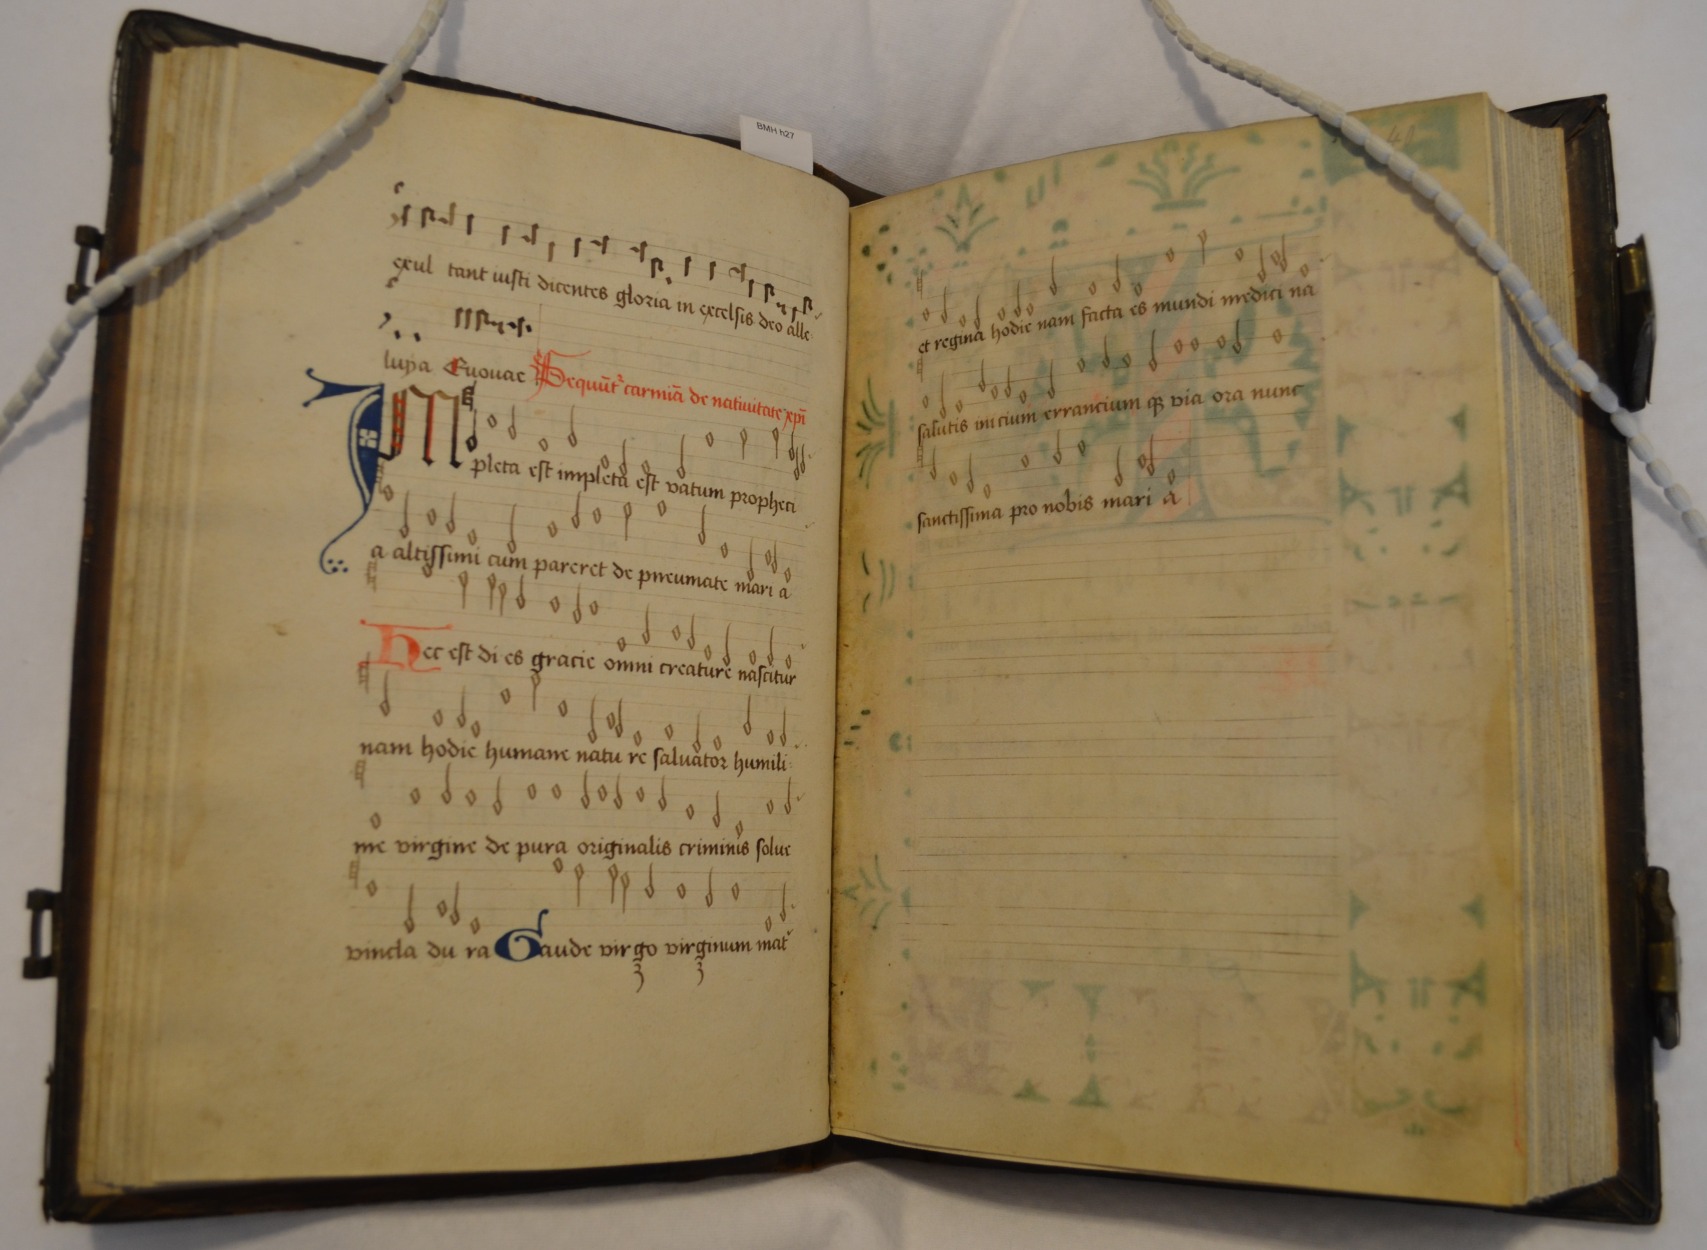 BMH h27
exul tant iusti dicentes gloria in excelsis deo alle
luya Euouae Sequūt᷑ carmīa de natiuitate xp̄i
Impleta est impleta est vatum propheci
a altissimi cum pareret de pneumate mari a
Hec est di es gracie omni creature nascitur
nam hodie humane natu re saluator humili
me virgine de pura originalis criminis solue
vincla du ra Gaude vir go virginum mat᷑
41
et regina hodie nam facta es mundi medici na
salutis inicium errancium qꝫ via ora nunc
sanctissima pro nobis mari a